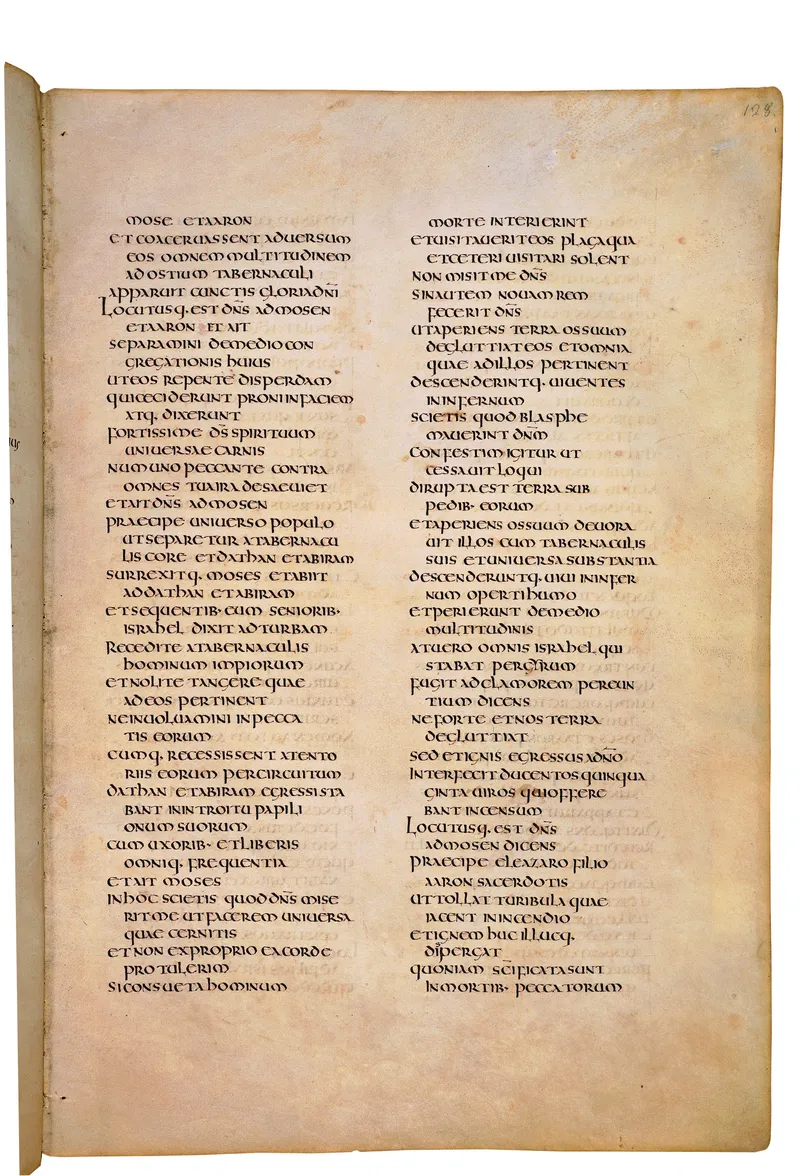 128
MOSE ETAARON
ET COACERUASSENT ADUERSUM
EOS OMNEM MULTITUDINEM
AD OSTIUM TABERNACULI
APPARUIT CUNCTIS GLORIA DNI
LOCUTUSQ. EST DNS AD MOSEN
ETAARON ET AIT
SEPARAMINI DEMEDIO CON
GREGATIONIS HUIUS
UTEOS REPENTE DISPERDAM
QUI CECIDERUNT PRONI IN FACIEM
ATQ. DIXERUNT
FORTISSIME DS SPIRITUUM
UNIUERSAE CARNIS
NUM UNO PECCANTE CONTRA
OMNES TUA IRA DESAEUIET
ET AIT DNS AD MOSEN
PRAECIPE UNIUERSO POPULO
UT SEPARETUR A TABERNACU
LIS CORE ET DATHAN ET ABIRAM
SURREXITQ. MOSES ET ABIIT
AD DATHAN ET ABIRAM
ET SEQUENTIB· EUM SENIORIB·
ISRAHEL DIXIT AD TURBAM
RECEDITE A TABERNACULIS
HOMINUM IMPIORUM
ET NOLITE TANGERE QUAE
AD EOS PERTINENT
NE INUOLUAMINI IN PECCA
TIS EORUM
CUMQ. RECESSISSENT A TENTO
RIIS EORUM PER CIRCUITUM
DATHAN ET ABIRAM EGRESSI STA
BANT IN INTROITU PAPILI
ONUM SUORUM
CUM UXORIB· ET LIBERIS
OMNIQ. FREQUENTIA
ET AIT MOSES
IN HOC SCIETIS QUOD DNS MISE
RIT ME UT FACEREM UNIUERSA
QUAE CERNITIS
ET NON EX PROPRIO EA CORDE
PROTULERIM
SI CONSUETA HOMINUM
MORTE INTERIERINT
ET UISITAUERIT EOS PLAGA QUA
ET CETERI UISITARI SOLENT
NON MISIT ME DNS
SIN AUTEM NOUAM REM
FECERIT DNS
UT APERIENS TERRA OS SUUM
DEGLUTTIAT EOS ET OMNIA
QUAE AD ILLOS PERTINENT
DESCENDERINTQ. UIUENTES
IN INFERNUM
SCIETIS QUOD BLASPHE
MAUERINT DNM
CONFESTIM IGITUR UT
CESSAUIT LOQUI
DIRUPTA EST TERRA SUB
PEDIB· EORUM
ET APERIENS OS SUUM DEUORA
UIT ILLOS CUM TABERNACULIS
SUIS ET UNIUERSA SUBSTANTIA
DESCENDERUNTQ. UIUI IN INFER
NUM OPERTI HUMO
ET PERIERUNT DE MEDIO
MULTITUDINIS
AT UERO OMNIS ISRAHEL QUI
STABAT PER GYRUM
FUGIT AD CLAMOREM PEREUN
TIUM DICENS
NE FORTE ET NOS TERRA
DEGLUTTIAT
SED ET IGNIS EGRESSUS A DNO
INTERFECIT DUCENTOS QUINQUA
GINTA UIROS QUI OFFERE
BANT INCENSUM
LOCUTUSQ. EST DNS
AD MOSEN DICENS
PRAECIPE ELEAZARO FILIO
AARON SACERDOTIS
UT TOLLAT TURIBULA QUAE
IACENT IN INCENDIO
ET IGNEM HUC ILLUCQ.
DISPERGAT
QUONIAM SCIFICATA SUNT
IN MORTIB· PECCATORUM